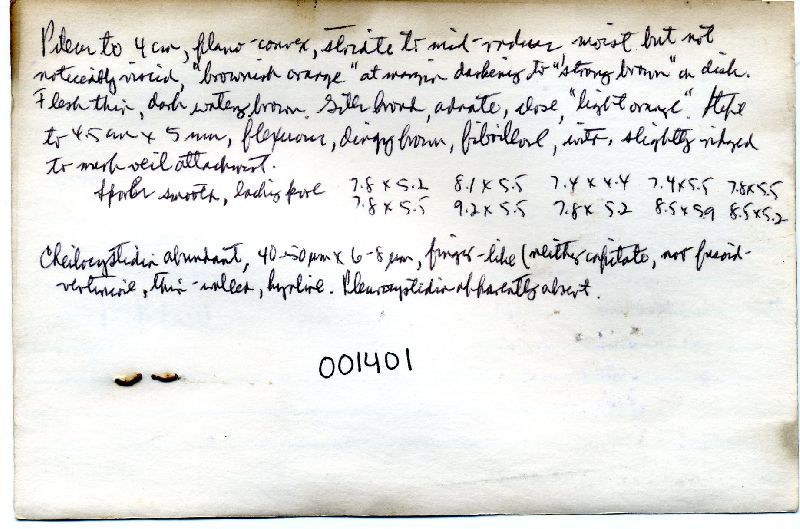 Pileus to 4 cm, plano-convex, striate to mid-radius, moist but not
noticeably viscid, "brownish orange" at margin darkening to "strong brown" on disk.
Flesh thin, dark watery brown. Gills broad, adnate, close, "light orange". Stipe
to 4.5 cm x 5 mm, flexuous, dingy brown, fibrillose, with slightly ridged
to mark veil attachment.
Spores smooth, lacking pore 7.8 x 5.2 8.1 x 5.5 7.4 x 4.4 7.4 x 5.5 7.8 x 5.5
7.8 x 5.5 9.2 x 5.5 7.8 x 5.2 8.5 x 5.9 8.5 x 5.2
Cheilocystidia abundant, 40-50 µm x 6-8 µm, finger-like (neither capitate, nor fusoid-
ventricose, thin-walled, hyaline. Pleurocystidia apparently absent.
001401